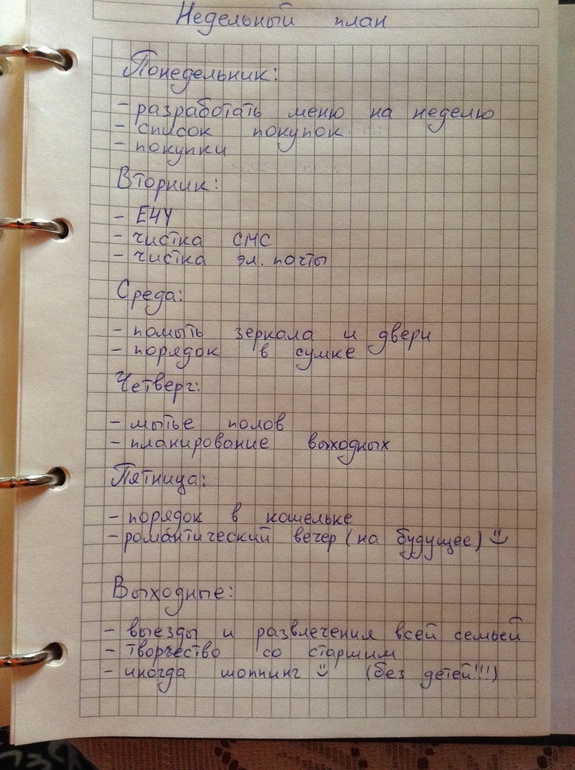 Недельный план
Понедельник:
- разработать меню на неделю
- список покупок
- покупки
Вторник:
- ЕЧУ
- чистка СМС
- чистка эл. почты
Среда:
- помыть зеркала и двери
- порядок в сумке
Четверг:
- мытье полов
- планирование выходных
Пятница:
- порядок в кошельке
- романтический вечер (на будущее)
Выходные:
- выезды и развлечения всей семьей
- творчество со старшим
- иногда шоппинг (без детей!!!)